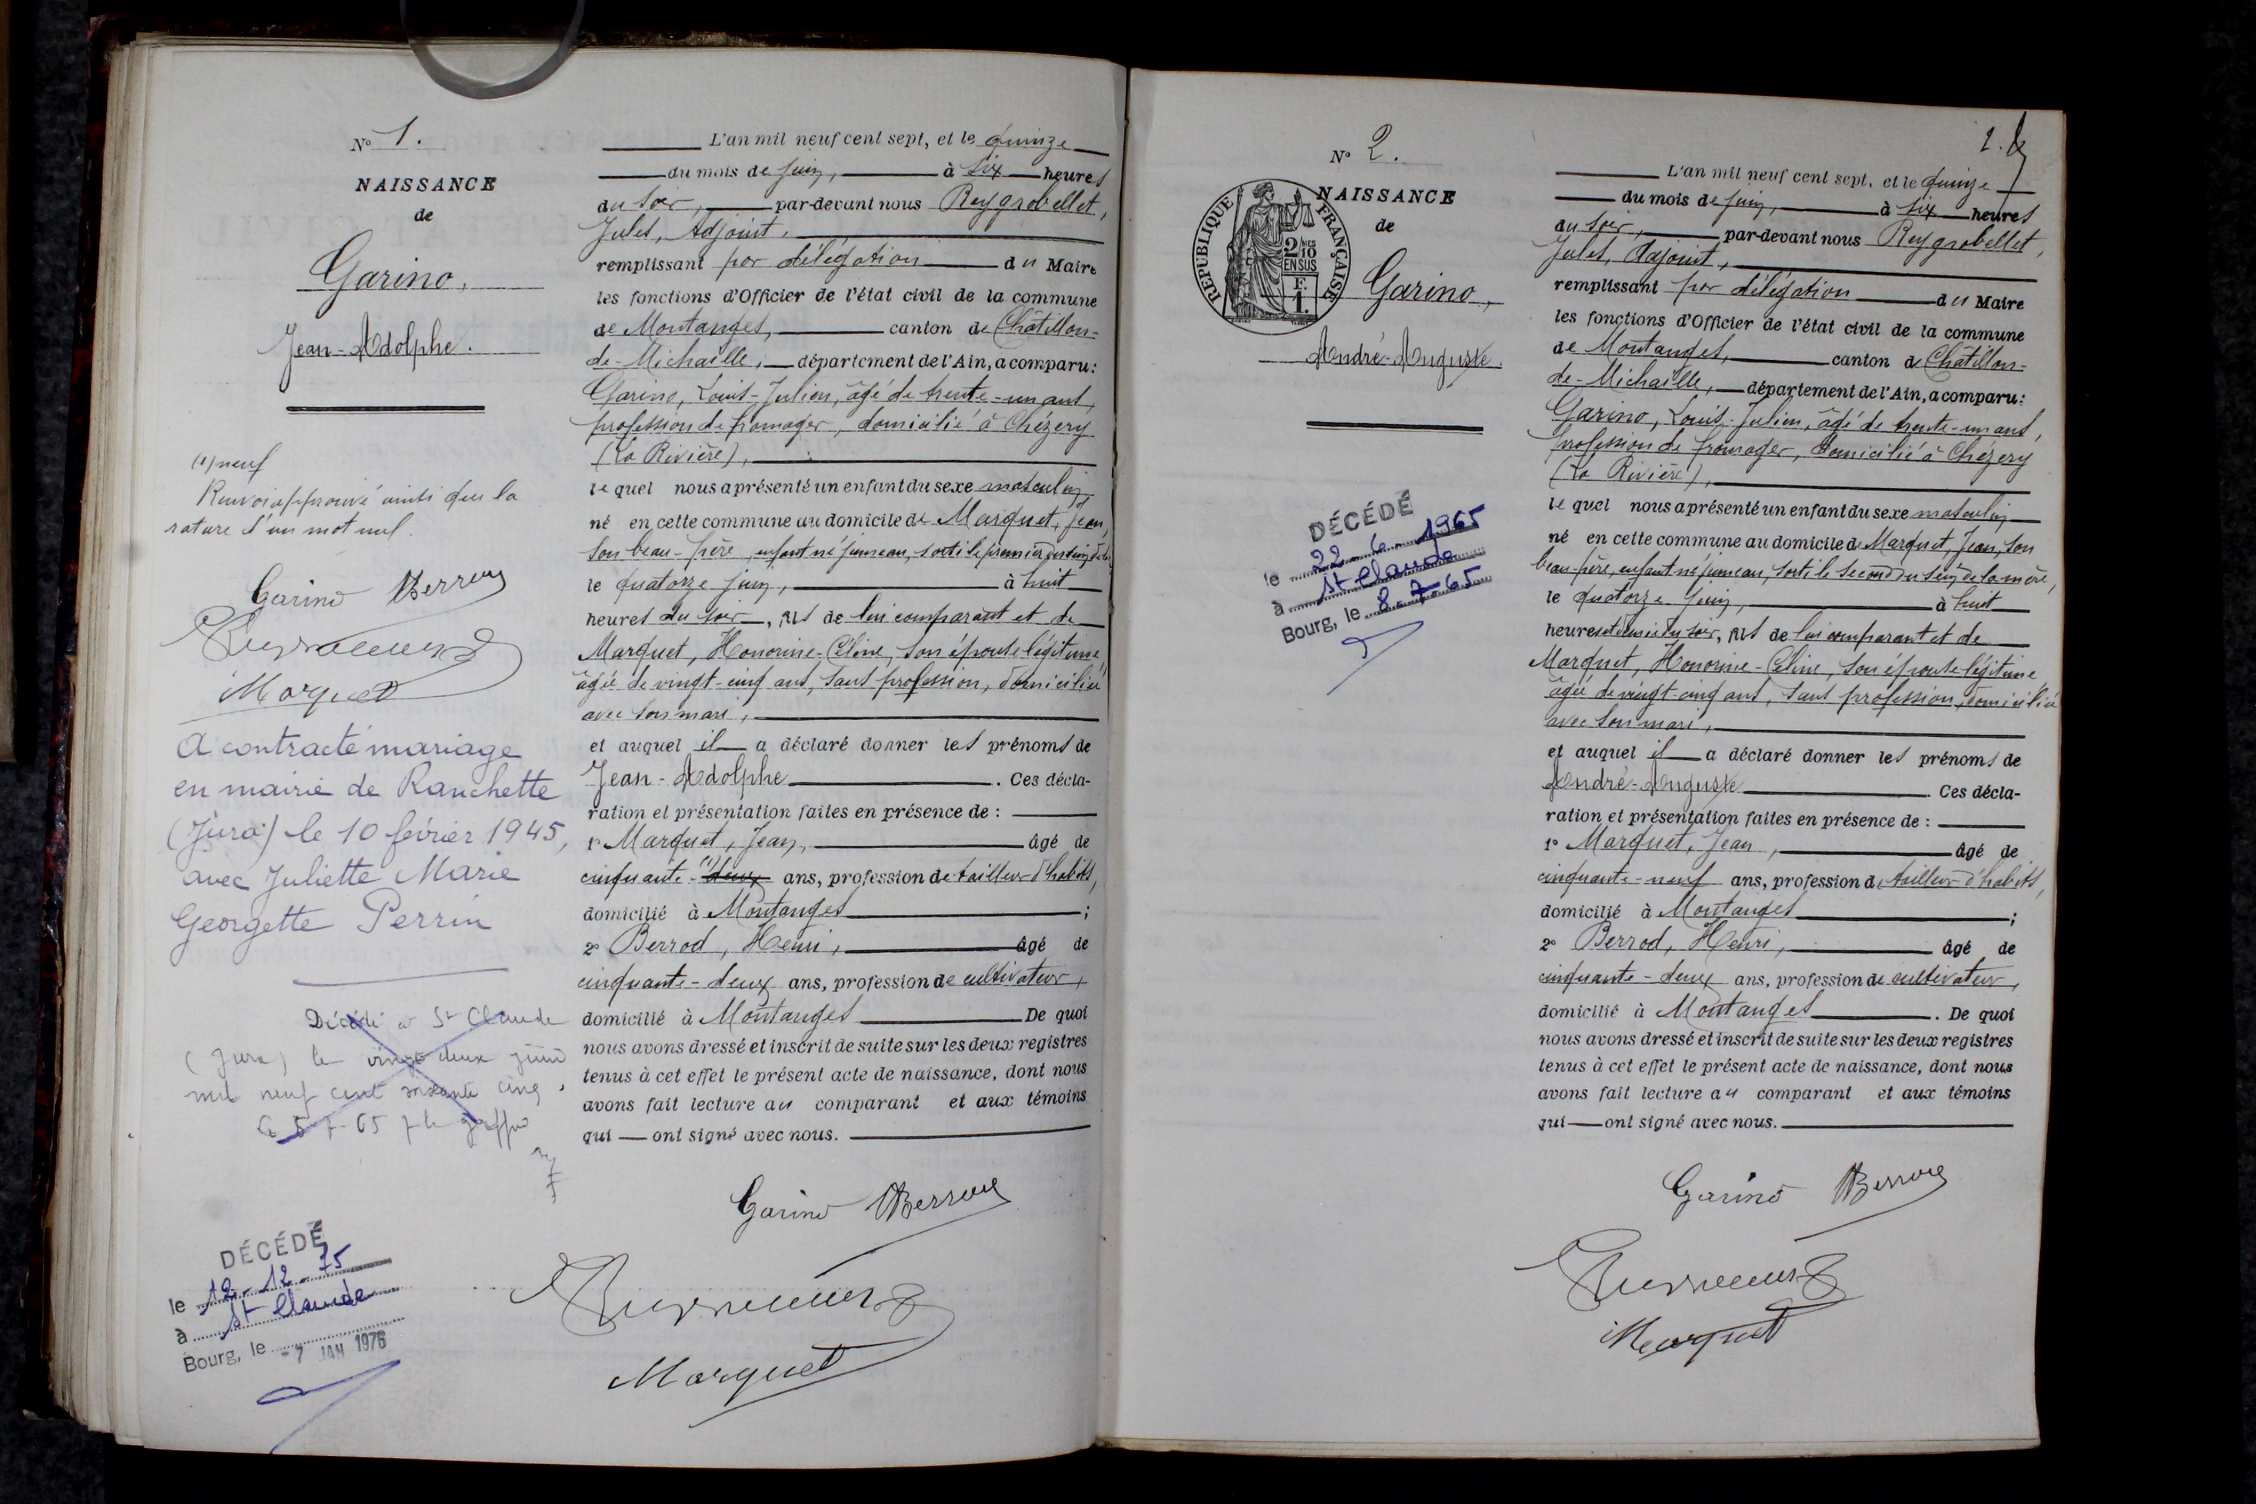 N° 1.
NAISSANCE
de
Garino,
Jean-Adolphe.
(1) neuf
Renvoi approuvé ainsi que la
rature d'un mot nul.
Garino Berrod
Marquet
A contracté mariage
en mairie de Ranchette
(Jura) le 10 février 1945,
avec Juliette Marie
Georgette Perrin
Décédé à St Claude
(Jura) le vingt deux juin
mil neuf cent soixante cinq.
Le 5-7-65 p le greffier
DÉCÉDÉ
le 12-12-75
à St Claude
Bourg, le -7 JAN 1976
L'an mil neuf cent sept, et le quinze
du mois de juin, à six heures
du soir, par-devant nous Reygrobellet,
Jules, Adjoint,
remplissant par délégation du Maire
les fonctions d'Officier de l'état civil de la commune
de Montanges, canton de Châtillon-
de-Michaille, département de l'Ain, a comparu:
Garino, Louis-Julien, âgé de trente-un ans,
profession de fromager, domicilié à Chézery
(La Rivière),
le quel nous a présenté un enfant du sexe masculin,
né en cette commune au domicile de Marquet, Jean,
son beau-père, enfant né jumeau, sorti le premier du sein de la
le quatorze juin, à huit
heures du soir, fils de lui comparant et de
Marquet, Honorine-Céline, son épouse légitime,
âgée de vingt-cinq ans, sans profession, domiciliée
avec son mari,
et auquel il a déclaré donner les prénoms de
Jean-Adolphe. Ces décla-
ration et présentation faites en présence de :
1° Marquet, Jean, âgé de
cinquante-(1) deux ans, profession de tailleur d'habits,
domicilié à Montanges;
2° Berrod, Henri, âgé de
cinquante-deux ans, profession de cultivateur,
domicilié à Montanges De quoi
nous avons dressé et inscrit de suite sur les deux registres
tenus à cet effet le présent acte de naissance, dont nous
avons fait lecture au comparant et aux témoins
qui ont signé avec nous.
Garino Berrod
Marquet
2.
N° 2.
NAISSANCE
de
RÉPUBLIQUE FRANÇAISE
2/10 EN SUS
F. 1.
Garino,
André-Auguste.
DÉCÉDÉ
le 22-6-1965
à St Claude
Bourg, le 8-7-65
L'an mil neuf cent sept, et le quinze
du mois de juin, à six heures
du soir, par-devant nous Reygrobellet,
Jules, Adjoint,
remplissant par délégation du Maire
les fonctions d'Officier de l'état civil de la commune
de Montanges, canton de Châtillon-
de-Michaille, département de l'Ain, a comparu:
Garino, Louis-Julien, âgé de trente-un ans,
profession de fromager, domicilié à Chézery
(La Rivière),
le quel nous a présenté un enfant du sexe masculin
né en cette commune au domicile de Marquet, Jean, son
beau-père, enfant né jumeau, sorti le second du sein de la mère,
le quatorze juin, à huit
heures et demie du soir, fils de lui comparant et de
Marquet, Honorine-Céline, son épouse légitime
âgée de vingt-cinq ans, sans profession, domiciliée
avec son mari,
et auquel il a déclaré donner les prénoms de
André-Auguste. Ces décla-
ration et présentation faites en présence de :
1° Marquet, Jean, âgé de
cinquante-neuf ans, profession de tailleur d'habits,
domicilié à Montanges;
2° Berrod, Henri, âgé de
cinquante-deux ans, profession de cultivateur,
domicilié à Montanges. De quoi
nous avons dressé et inscrit de suite sur les deux registres
tenus à cet effet le présent acte de naissance, dont nous
avons fait lecture au comparant et aux témoins
qui ont signé avec nous.
Garino Berrod
Marquet